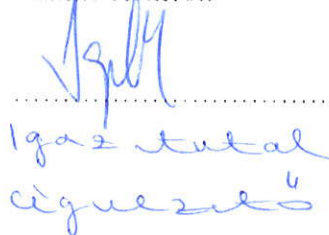 Igaz Antal
cégvezető